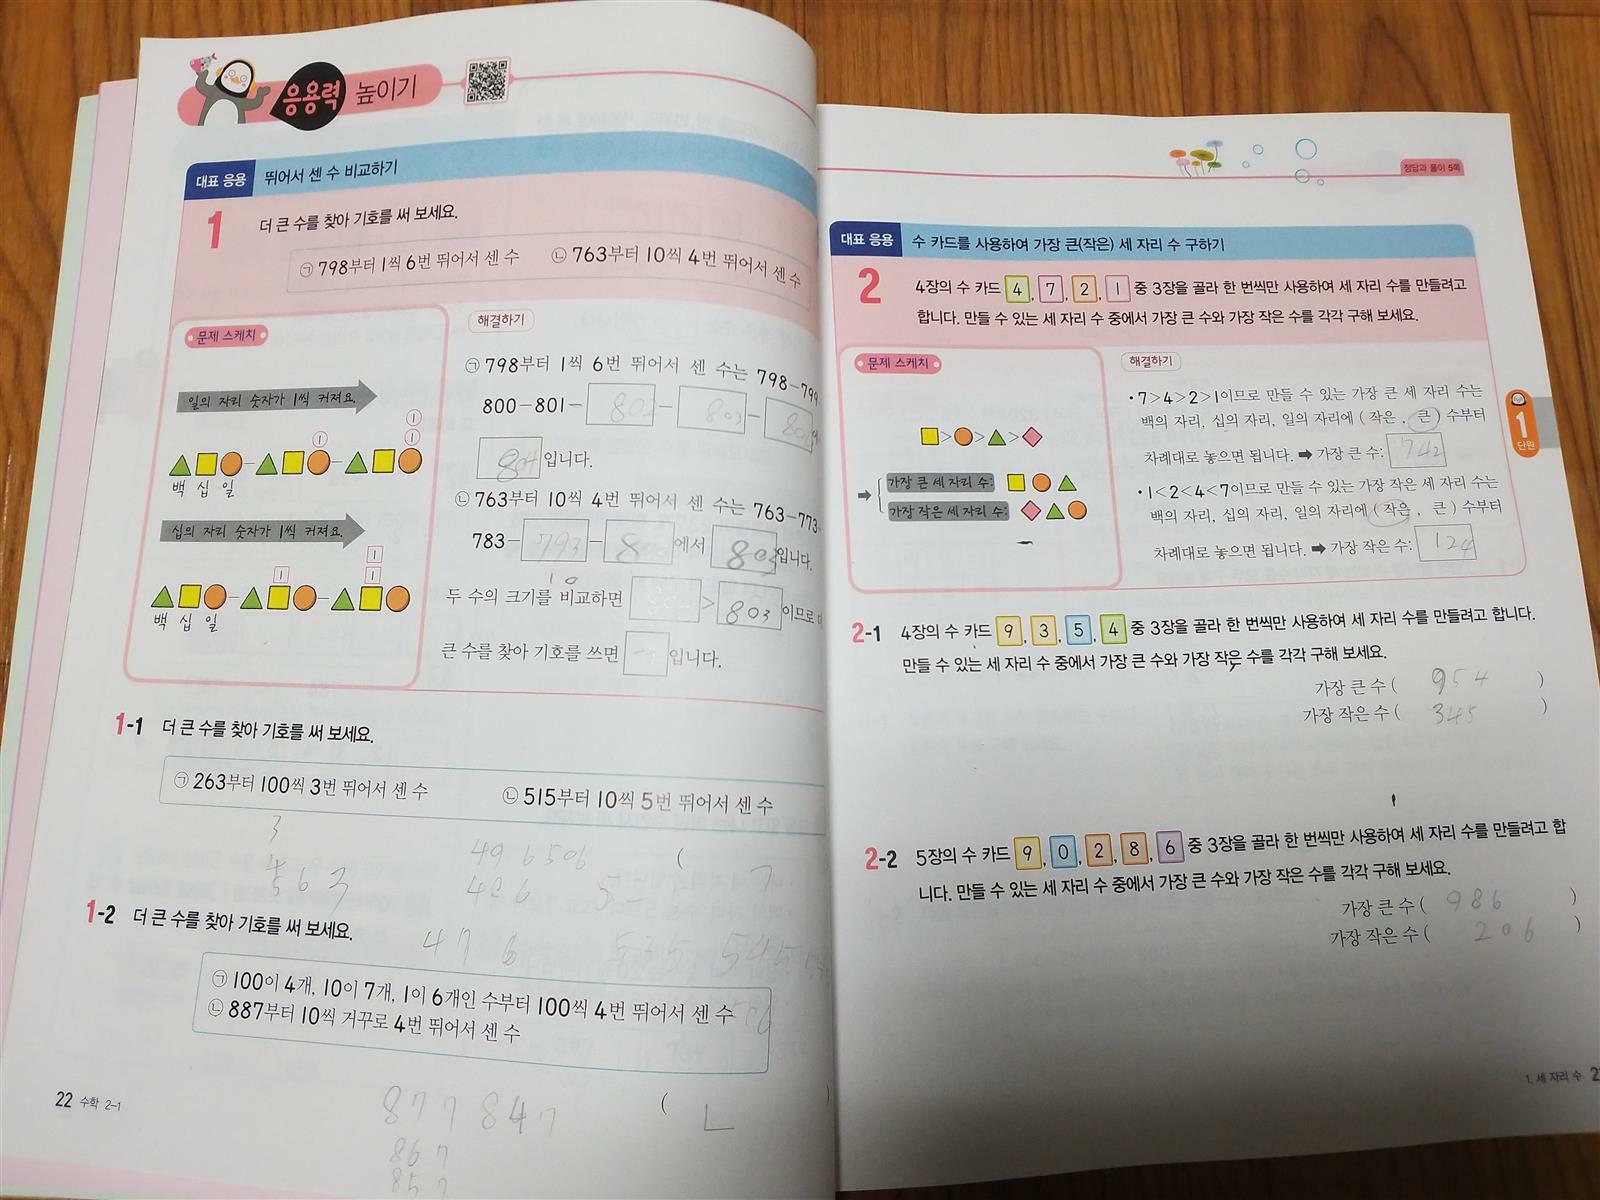 응용력 높이기
대표 응용 뛰어서 센 수 비교하기
1 더 큰 수를 찾아 기호를 써 보세요.
㉠ 798부터 1씩 6번 뛰어서 센 수 ㉡ 763부터 10씩 4번 뛰어서 센 수
문제 스케치
일의 자리 숫자가 1씩 커져요.
1
1 1
백 십 일
십의 자리 숫자가 1씩 커져요.
1
1 1
백 십 일
해결하기
㉠ 798부터 1씩 6번 뛰어서 센 수는 798-799
800-801- 802 - 803 -
804 입니다.
㉡ 763부터 10씩 4번 뛰어서 센 수는 763-773-
783- 793 - 8 에서 803 입니다.
10
두 수의 크기를 비교하면 > 803 이므로
큰 수를 찾아 기호를 쓰면 입니다.
1-1 더 큰 수를 찾아 기호를 써 보세요.
㉠ 263부터 100씩 3번 뛰어서 센 수 ㉡ 515부터 10씩 5번 뛰어서 센 수
3
4 496 506 ( ㄱ
563 486 5
1-2 더 큰 수를 찾아 기호를 써 보세요.
476 535 545
㉠ 100이 4개, 10이 7개, 1이 6개인 수부터 100씩 4번 뛰어서 센 수
㉡ 887부터 10씩 거꾸로 4번 뛰어서 센 수
877 847 ( ㄴ )
867
857
22 수학 2-1
정답과 풀이 5쪽
대표 응용 수 카드를 사용하여 가장 큰(작은) 세 자리 수 구하기
2 4장의 수 카드 4, 7, 2, 1 중 3장을 골라 한 번씩만 사용하여 세 자리 수를 만들려고
합니다. 만들 수 있는 세 자리 수 중에서 가장 큰 수와 가장 작은 수를 각각 구해 보세요.
문제 스케치
> > >
가장 큰 세 자리 수:
가장 작은 세 자리 수:
해결하기
• 7>4>2>1이므로 만들 수 있는 가장 큰 세 자리 수는
백의 자리, 십의 자리, 일의 자리에 ( 작은 , 큰 ) 수부터
차례대로 놓으면 됩니다. ➡ 가장 큰 수: 742
• 1<2<4<7이므로 만들 수 있는 가장 작은 세 자리 수는
백의 자리, 십의 자리, 일의 자리에 ( 작은 , 큰 ) 수부터
차례대로 놓으면 됩니다. ➡ 가장 작은 수: 124
1
단원
2-1 4장의 수 카드 9, 3, 5, 4 중 3장을 골라 한 번씩만 사용하여 세 자리 수를 만들려고 합니다.
만들 수 있는 세 자리 수 중에서 가장 큰 수와 가장 작은 수를 각각 구해 보세요.
가장 큰 수 ( 954 )
가장 작은 수 ( 345 )
2-2 5장의 수 카드 9, 0, 2, 8, 6 중 3장을 골라 한 번씩만 사용하여 세 자리 수를 만들려고 합
니다. 만들 수 있는 세 자리 수 중에서 가장 큰 수와 가장 작은 수를 각각 구해 보세요.
가장 큰 수 ( 986 )
가장 작은 수 ( 206 )
1. 세 자리 수